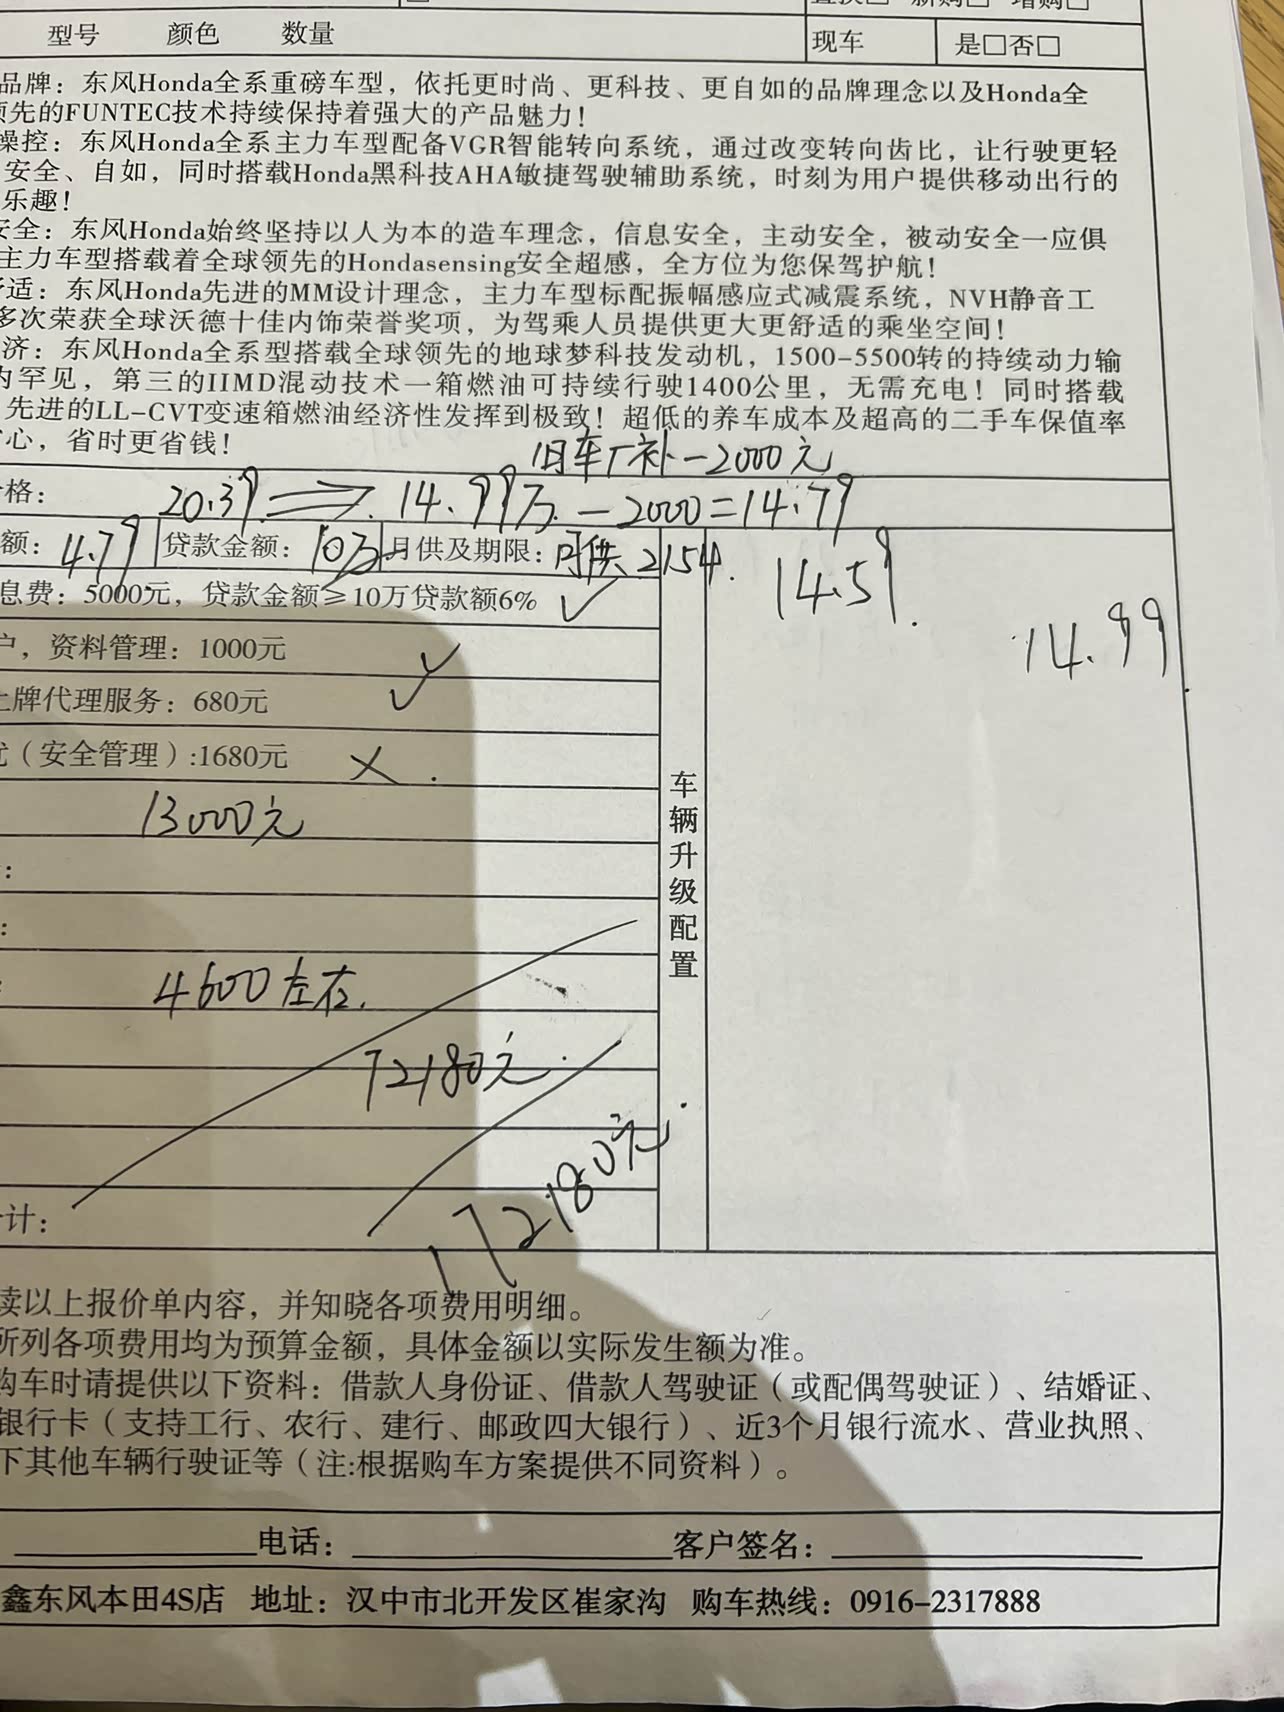 置换□ 新购□ 增购□
型号 颜色 数量 现车 是□否□
品牌：东风Honda全系重磅车型，依托更时尚、更科技、更自如的品牌理念以及Honda全
领先的FUNTEC技术持续保持着强大的产品魅力！
操控：东风Honda全系主力车型配备VGR智能转向系统，通过改变转向齿比，让行驶更轻
安全、自如，同时搭载Honda黑科技AHA敏捷驾驶辅助系统，时刻为用户提供移动出行的
乐趣！
安全：东风Honda始终坚持以人为本的造车理念，信息安全，主动安全，被动安全一应俱
主力车型搭载着全球领先的Hondasensing安全超感，全方位为您保驾护航！
舒适：东风Honda先进的MM设计理念，主力车型标配振幅感应式减震系统，NVH静音工
多次荣获全球沃德十佳内饰荣誉奖项，为驾乘人员提供更大更舒适的乘坐空间！
济：东风Honda全系型搭载全球领先的地球梦科技发动机，1500-5500转的持续动力输
内罕见，第三的IIMD混动技术一箱燃油可持续行驶1400公里，无需充电！同时搭载
先进的LL-CVT变速箱燃油经济性发挥到极致！超低的养车成本及超高的二手车保值率
心，省时更省钱！
旧车厂补-2000元
格： 20.39 ⇒ 14.99万 - 2000=14.79
额：4.79 贷款金额：10万 月供及期限：月供 2154.
14.59.
息费：5000元，贷款金额≥10万贷款额6% ✓
14.99
户，资料管理：1000元 ✓
上牌代理服务：680元 ✓
忧（安全管理）:1680元 ×
13000元
：
：
4600左右.
72180元.
172180元.
计：
车辆升级配置
读以上报价单内容，并知晓各项费用明细。
所列各项费用均为预算金额，具体金额以实际发生额为准。
购车时请提供以下资料：借款人身份证、借款人驾驶证（或配偶驾驶证）、结婚证、
银行卡（支持工行、农行、建行、邮政四大银行）、近3个月银行流水、营业执照、
下其他车辆行驶证等（注:根据购车方案提供不同资料）。
电话： 客户签名：
鑫东风本田4S店 地址：汉中市北开发区崔家沟 购车热线：0916-2317888